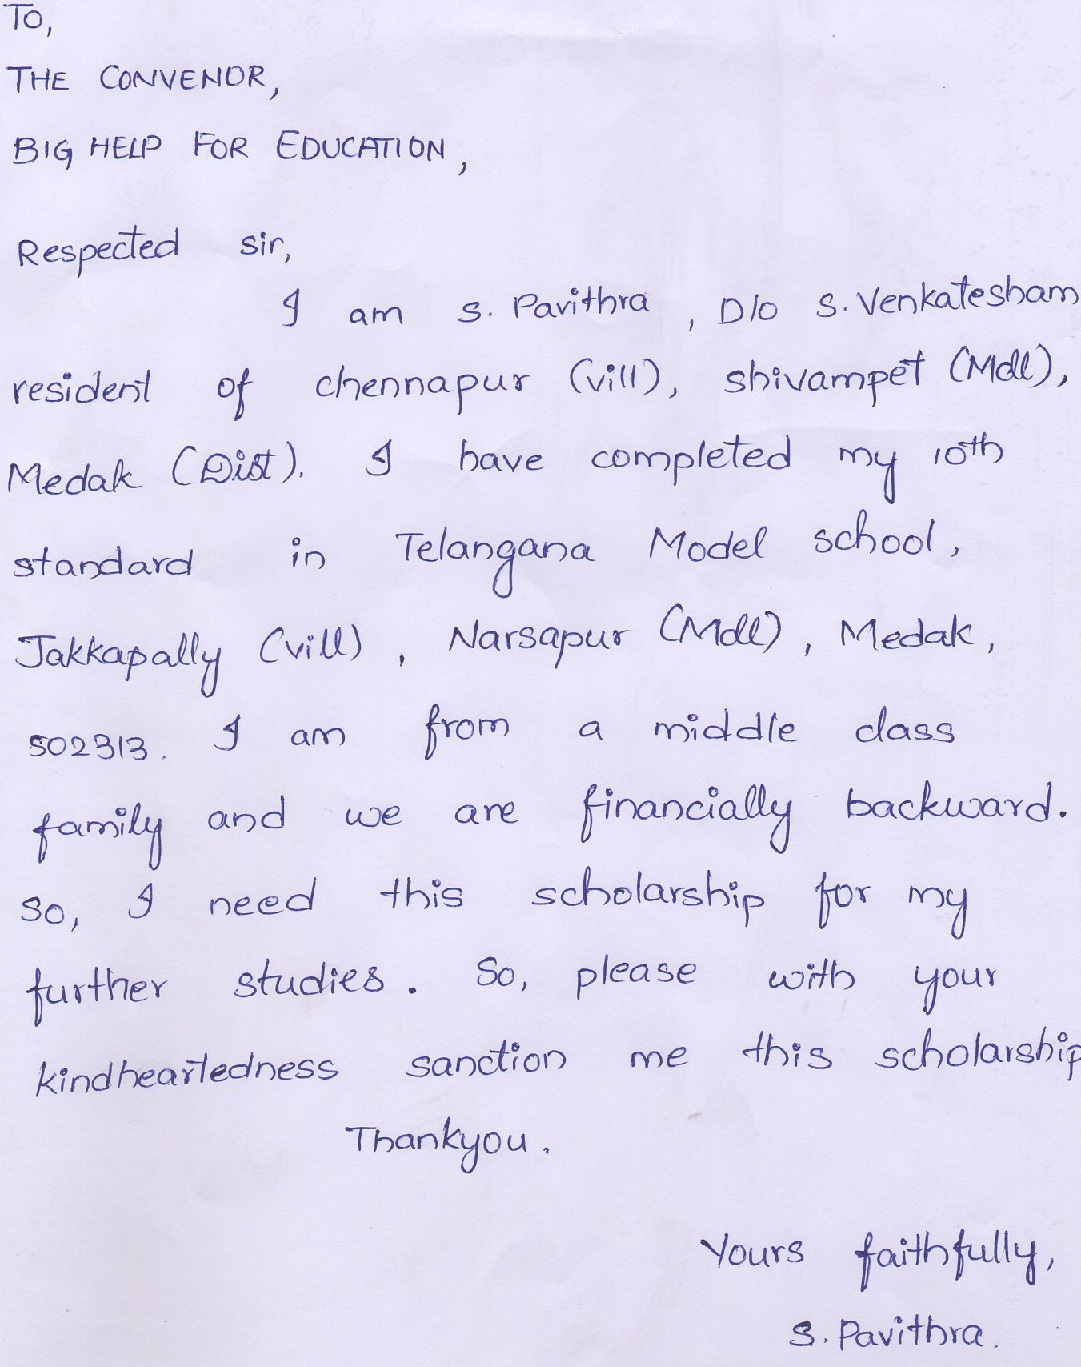 To,
THE CONVENOR,
BIG HELP FOR EDUCATION,
Respected sir,
I am S. Pavithra, D/o S. Venkatesham
resident of chennapur (vill), shivampet (Mdl),
Medak (Dist). I have completed my 10th
standard in Telangana Model school,
Jakkapally (vill), Narsapur (Mdl), Medak,
502313. I am from a middle class
family and we are financially backward.
So, I need this scholarship for my
further studies. So, please with your
kindheartedness sanction me this scholarship
Thankyou.
Yours faithfully,
S. Pavithra.